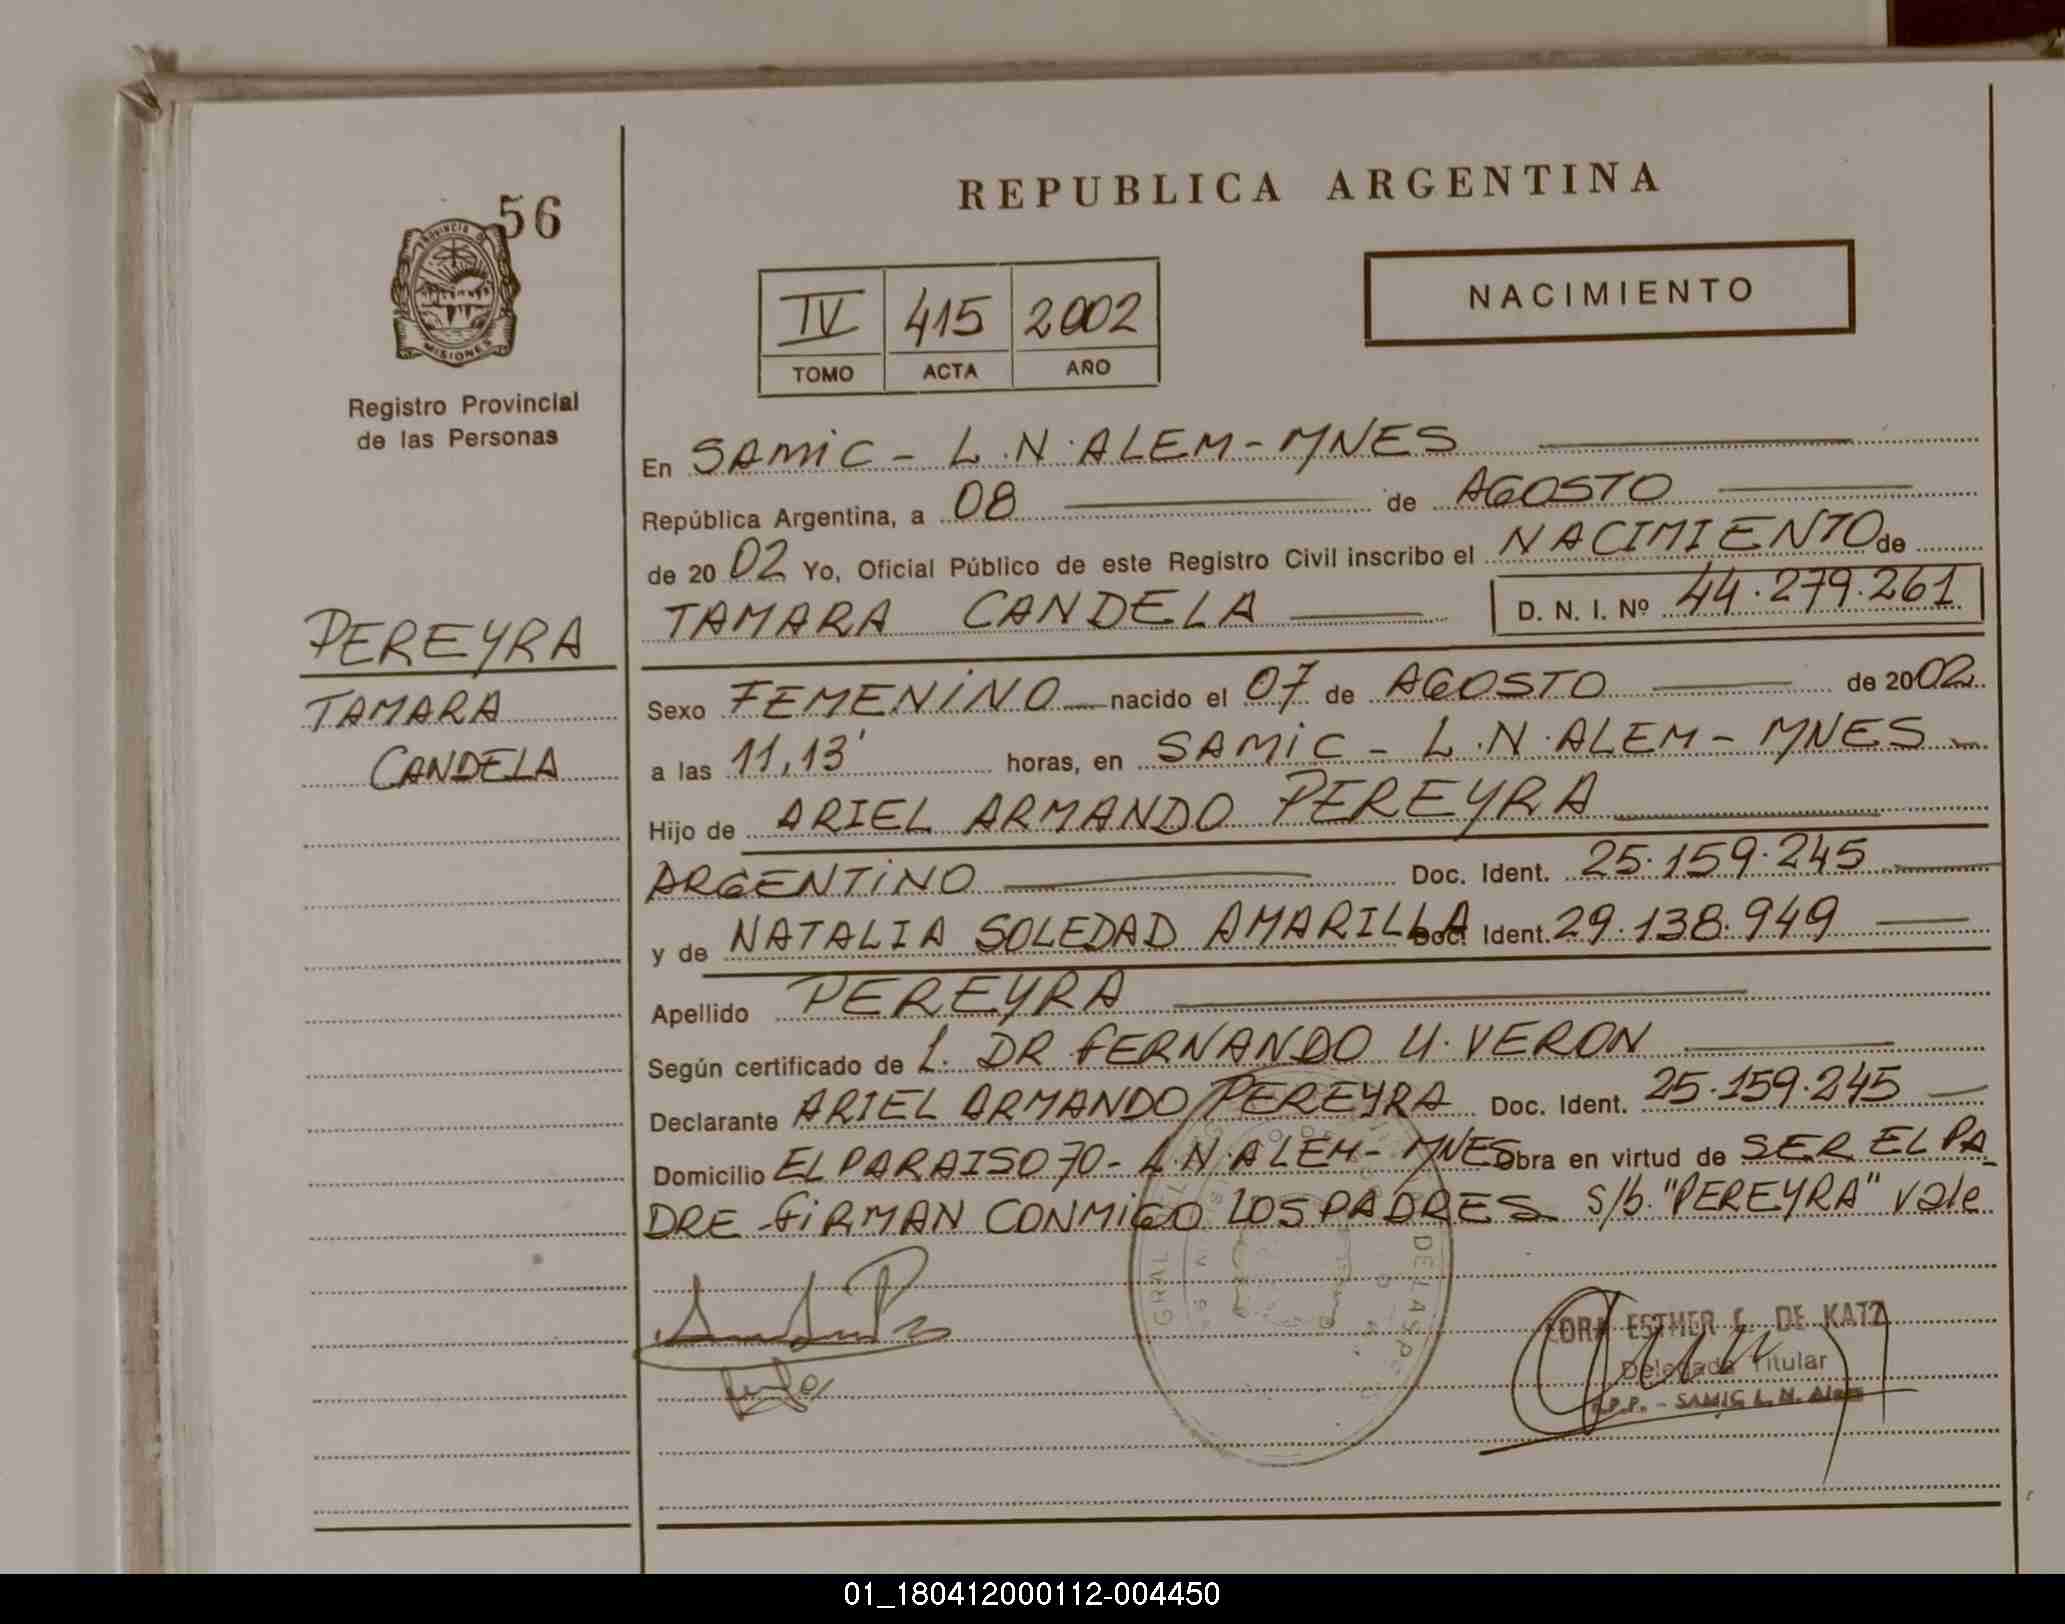 56
PROVINCIA DE
MISIONES
Registro Provincial
de las Personas
PEREYRA
TAMARA
CANDELA
REPUBLICA ARGENTINA
IV 415 2002
TOMO ACTA AÑO
NACIMIENTO
En SAMIC - L.N.ALEM - MNES
República Argentina, a 08 de AGOSTO
de 2002 Yo, Oficial Público de este Registro Civil inscribo el NACIMIENTO de
TAMARA CANDELA D. N. I. Nº 44.279.261
Sexo FEMENINO nacido el 07 de AGOSTO de 2002
a las 11,13' horas, en SAMIC - L.N.ALEM - MNES
Hijo de ARIEL ARMANDO PEREYRA
ARGENTINO Doc. Ident. 25.159.245
y de NATALIA SOLEDAD AMARILLA Doc. Ident. 29.138.949
Apellido PEREYRA
Según certificado de L. DR FERNANDO U. VERON
Declarante ARIEL ARMANDO PEREYRA Doc. Ident. 25.159.245
Domicilio EL PARAISO 70 - L.N.ALEM - MNES Obra en virtud de SER EL PA_
DRE FIRMAN CONMIGO LOS PADRES s/b. "PEREYRA" vale
ESTHER DE KATZ
Delegada Titular
SAMIC L. N. Alem
01_180412000112-004450